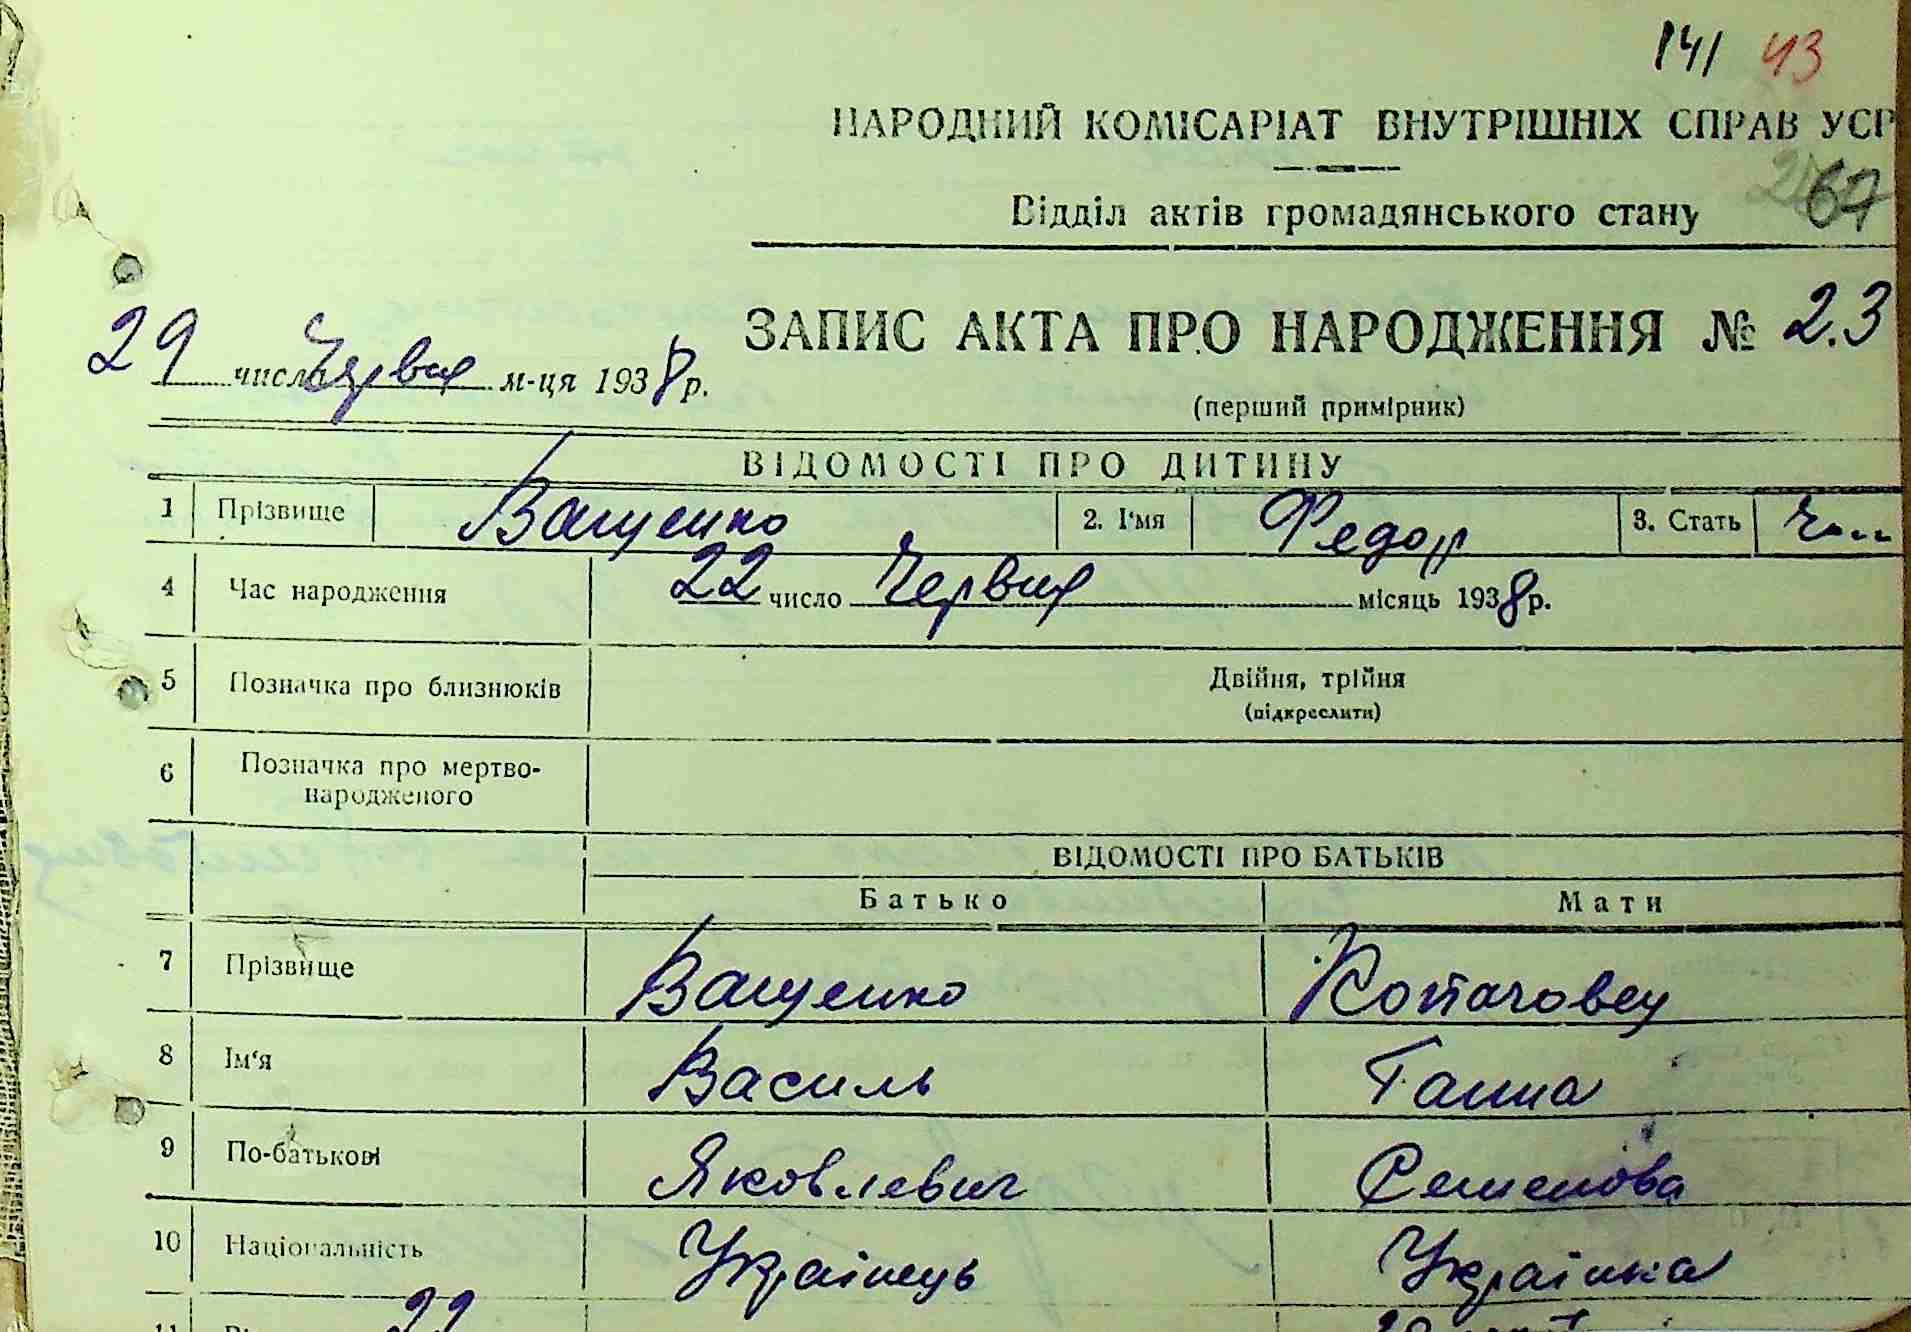 141 43
НАРОДНИЙ КОМІСАРІАТ ВНУТРІШНІХ СПРАВ УСР
67
Відділ актів громадянського стану
ЗАПИС АКТА ПРО НАРОДЖЕННЯ № 23
29 числа Червня м-ця 1938 р.
(перший примірник)
ВІДОМОСТІ ПРО ДИТИНУ
1 Прізвище Ващенко 2. І'мя Федор 3. Стать Чол.
4 Час народження 22 число Червня місяць 1938 р.
5 Позначка про близнюків Двійня, трійня
(підкреслити)
6 Позначка про мертво-
народженого
ВІДОМОСТІ ПРО БАТЬКІВ
Батько Мати
7 Прізвище Ващенко
8 Ім'я Василь Ганна
9 По-батькові Яковлевич Семенова
10 Національність Українець Українка
11 22